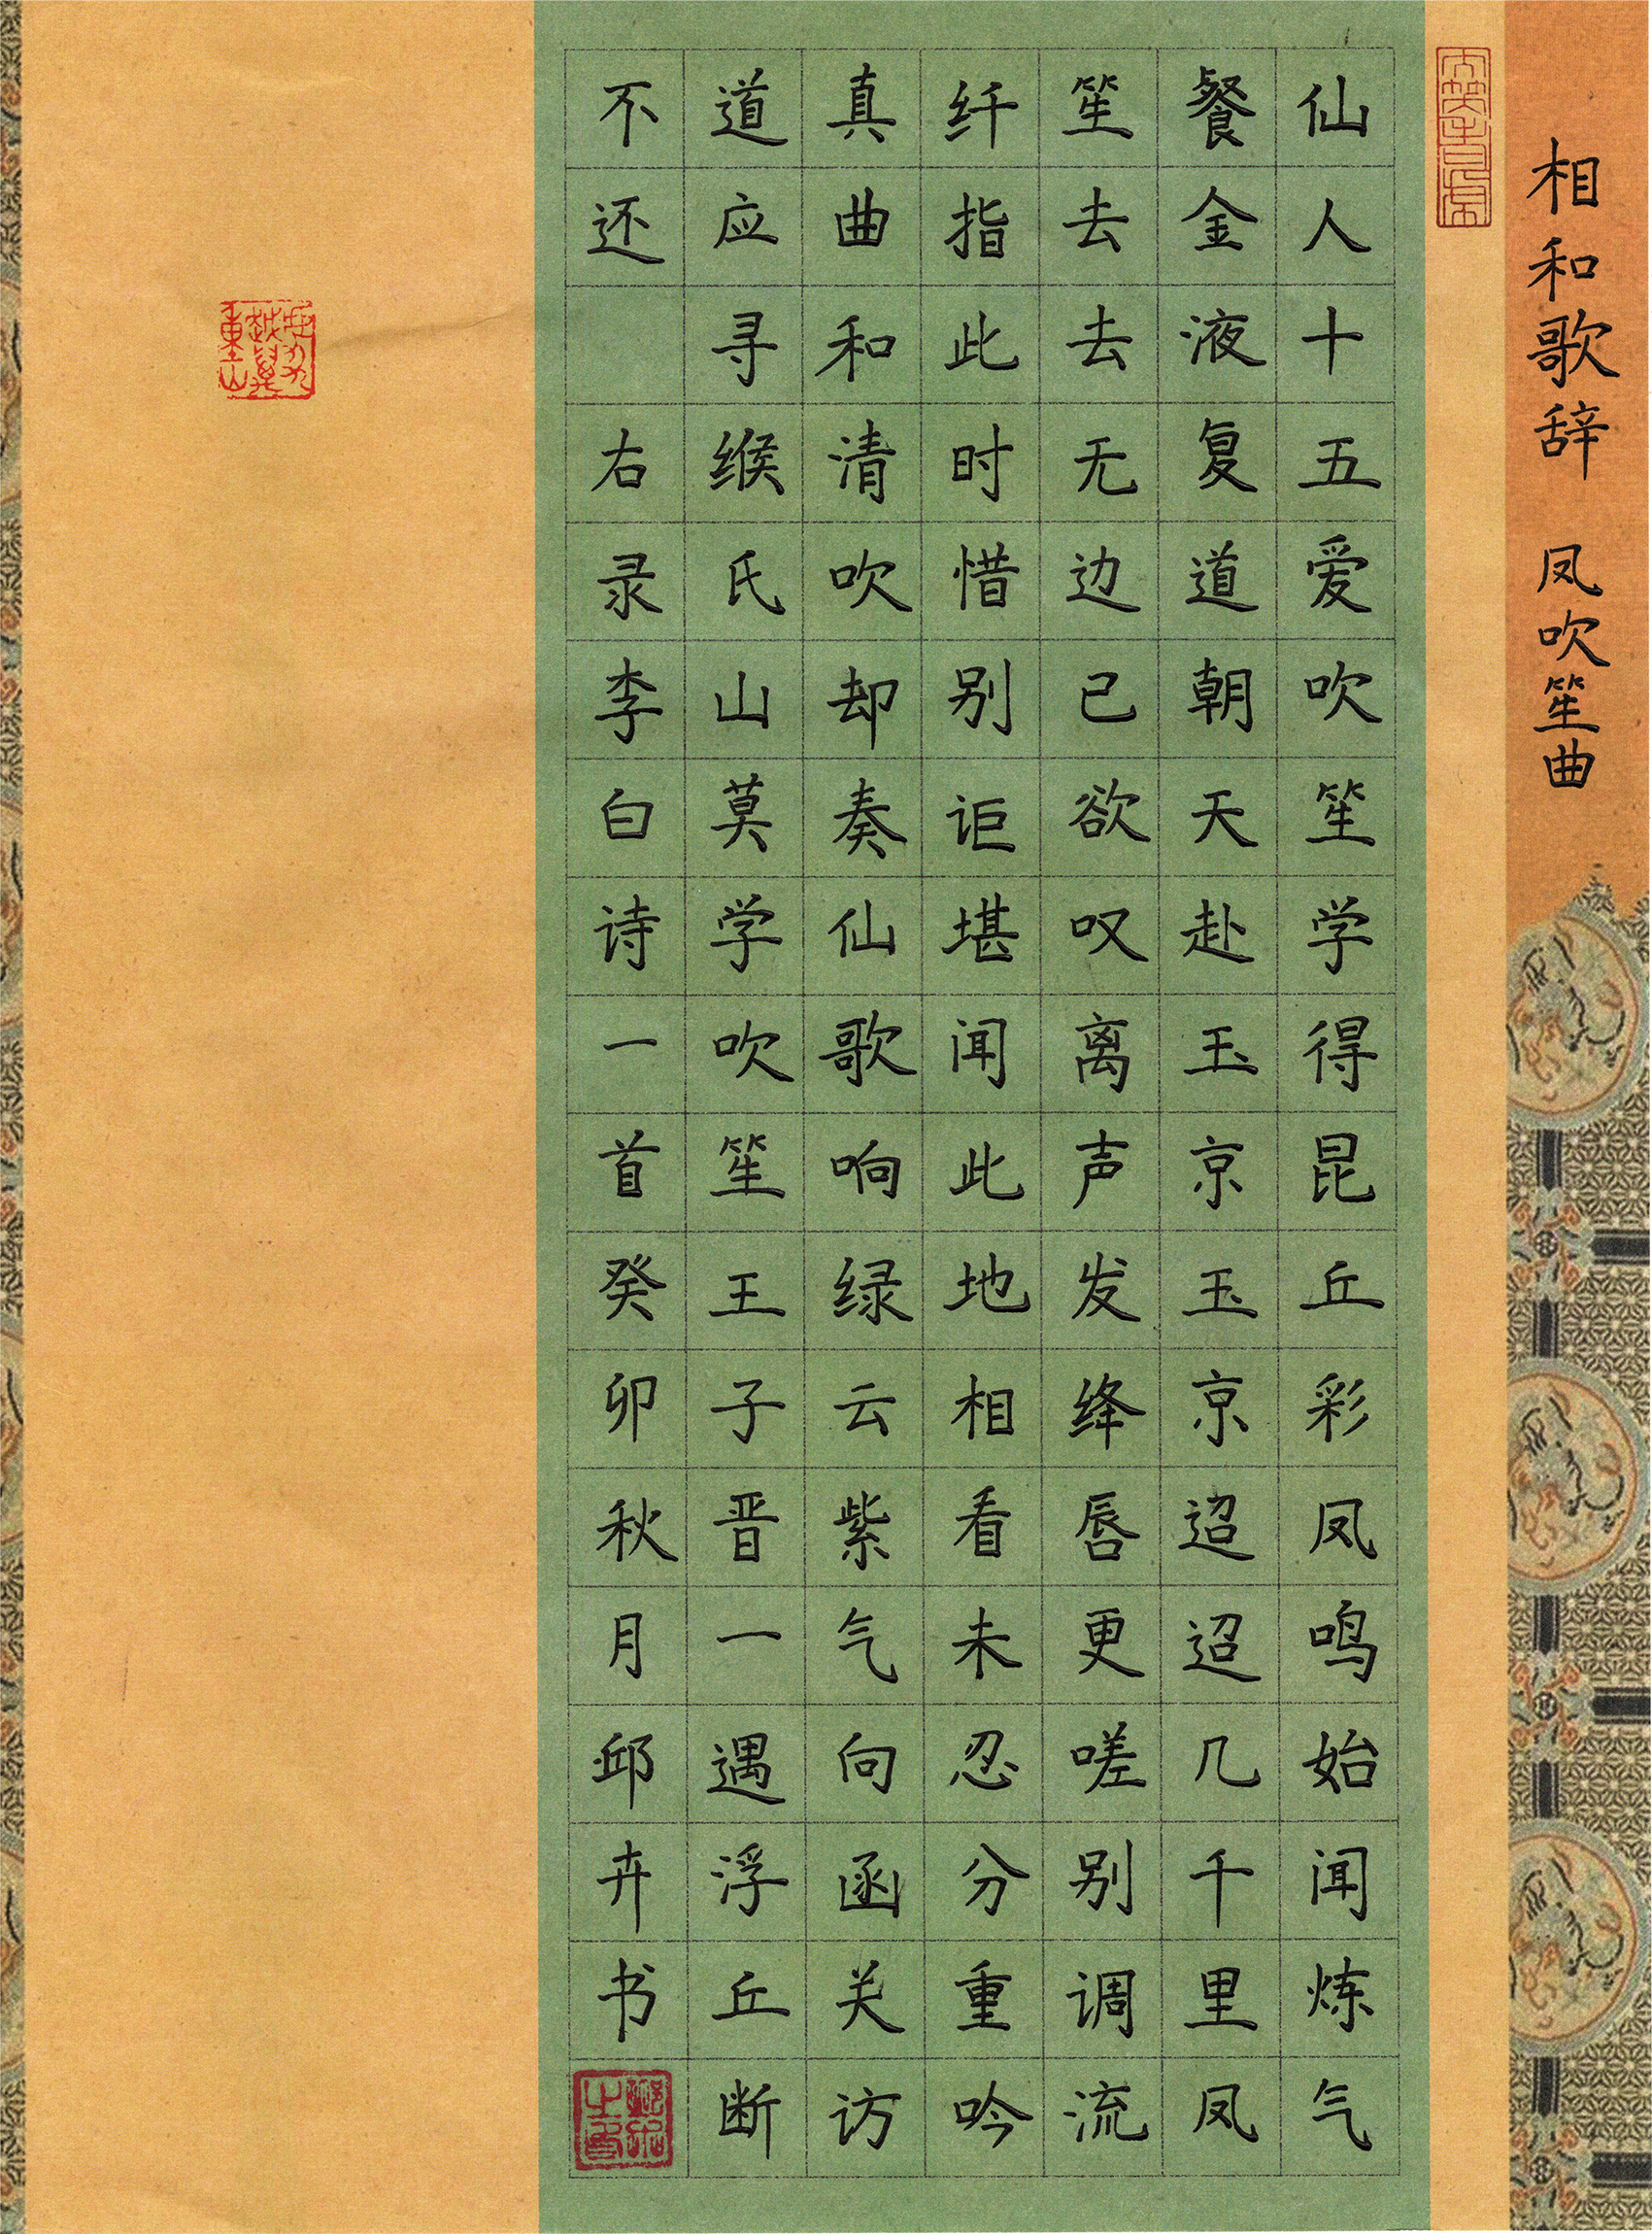 相和歌辞 凤吹笙曲
仙人十五爱吹笙学得昆丘彩凤鸣始闻炼气
餐金液复道朝天赴玉京玉京迢迢几千里凤
笙去去无边已欲叹离声发绛唇更嗟别调流
纤指此时惜别讵堪闻此地相看未忍分重吟
真曲和清吹却奏仙歌响绿云紫气向函关访
道应寻缑氏山莫学吹笙王子晋一遇浮丘断
不还 右录李白诗一首癸卯秋月邱卉书